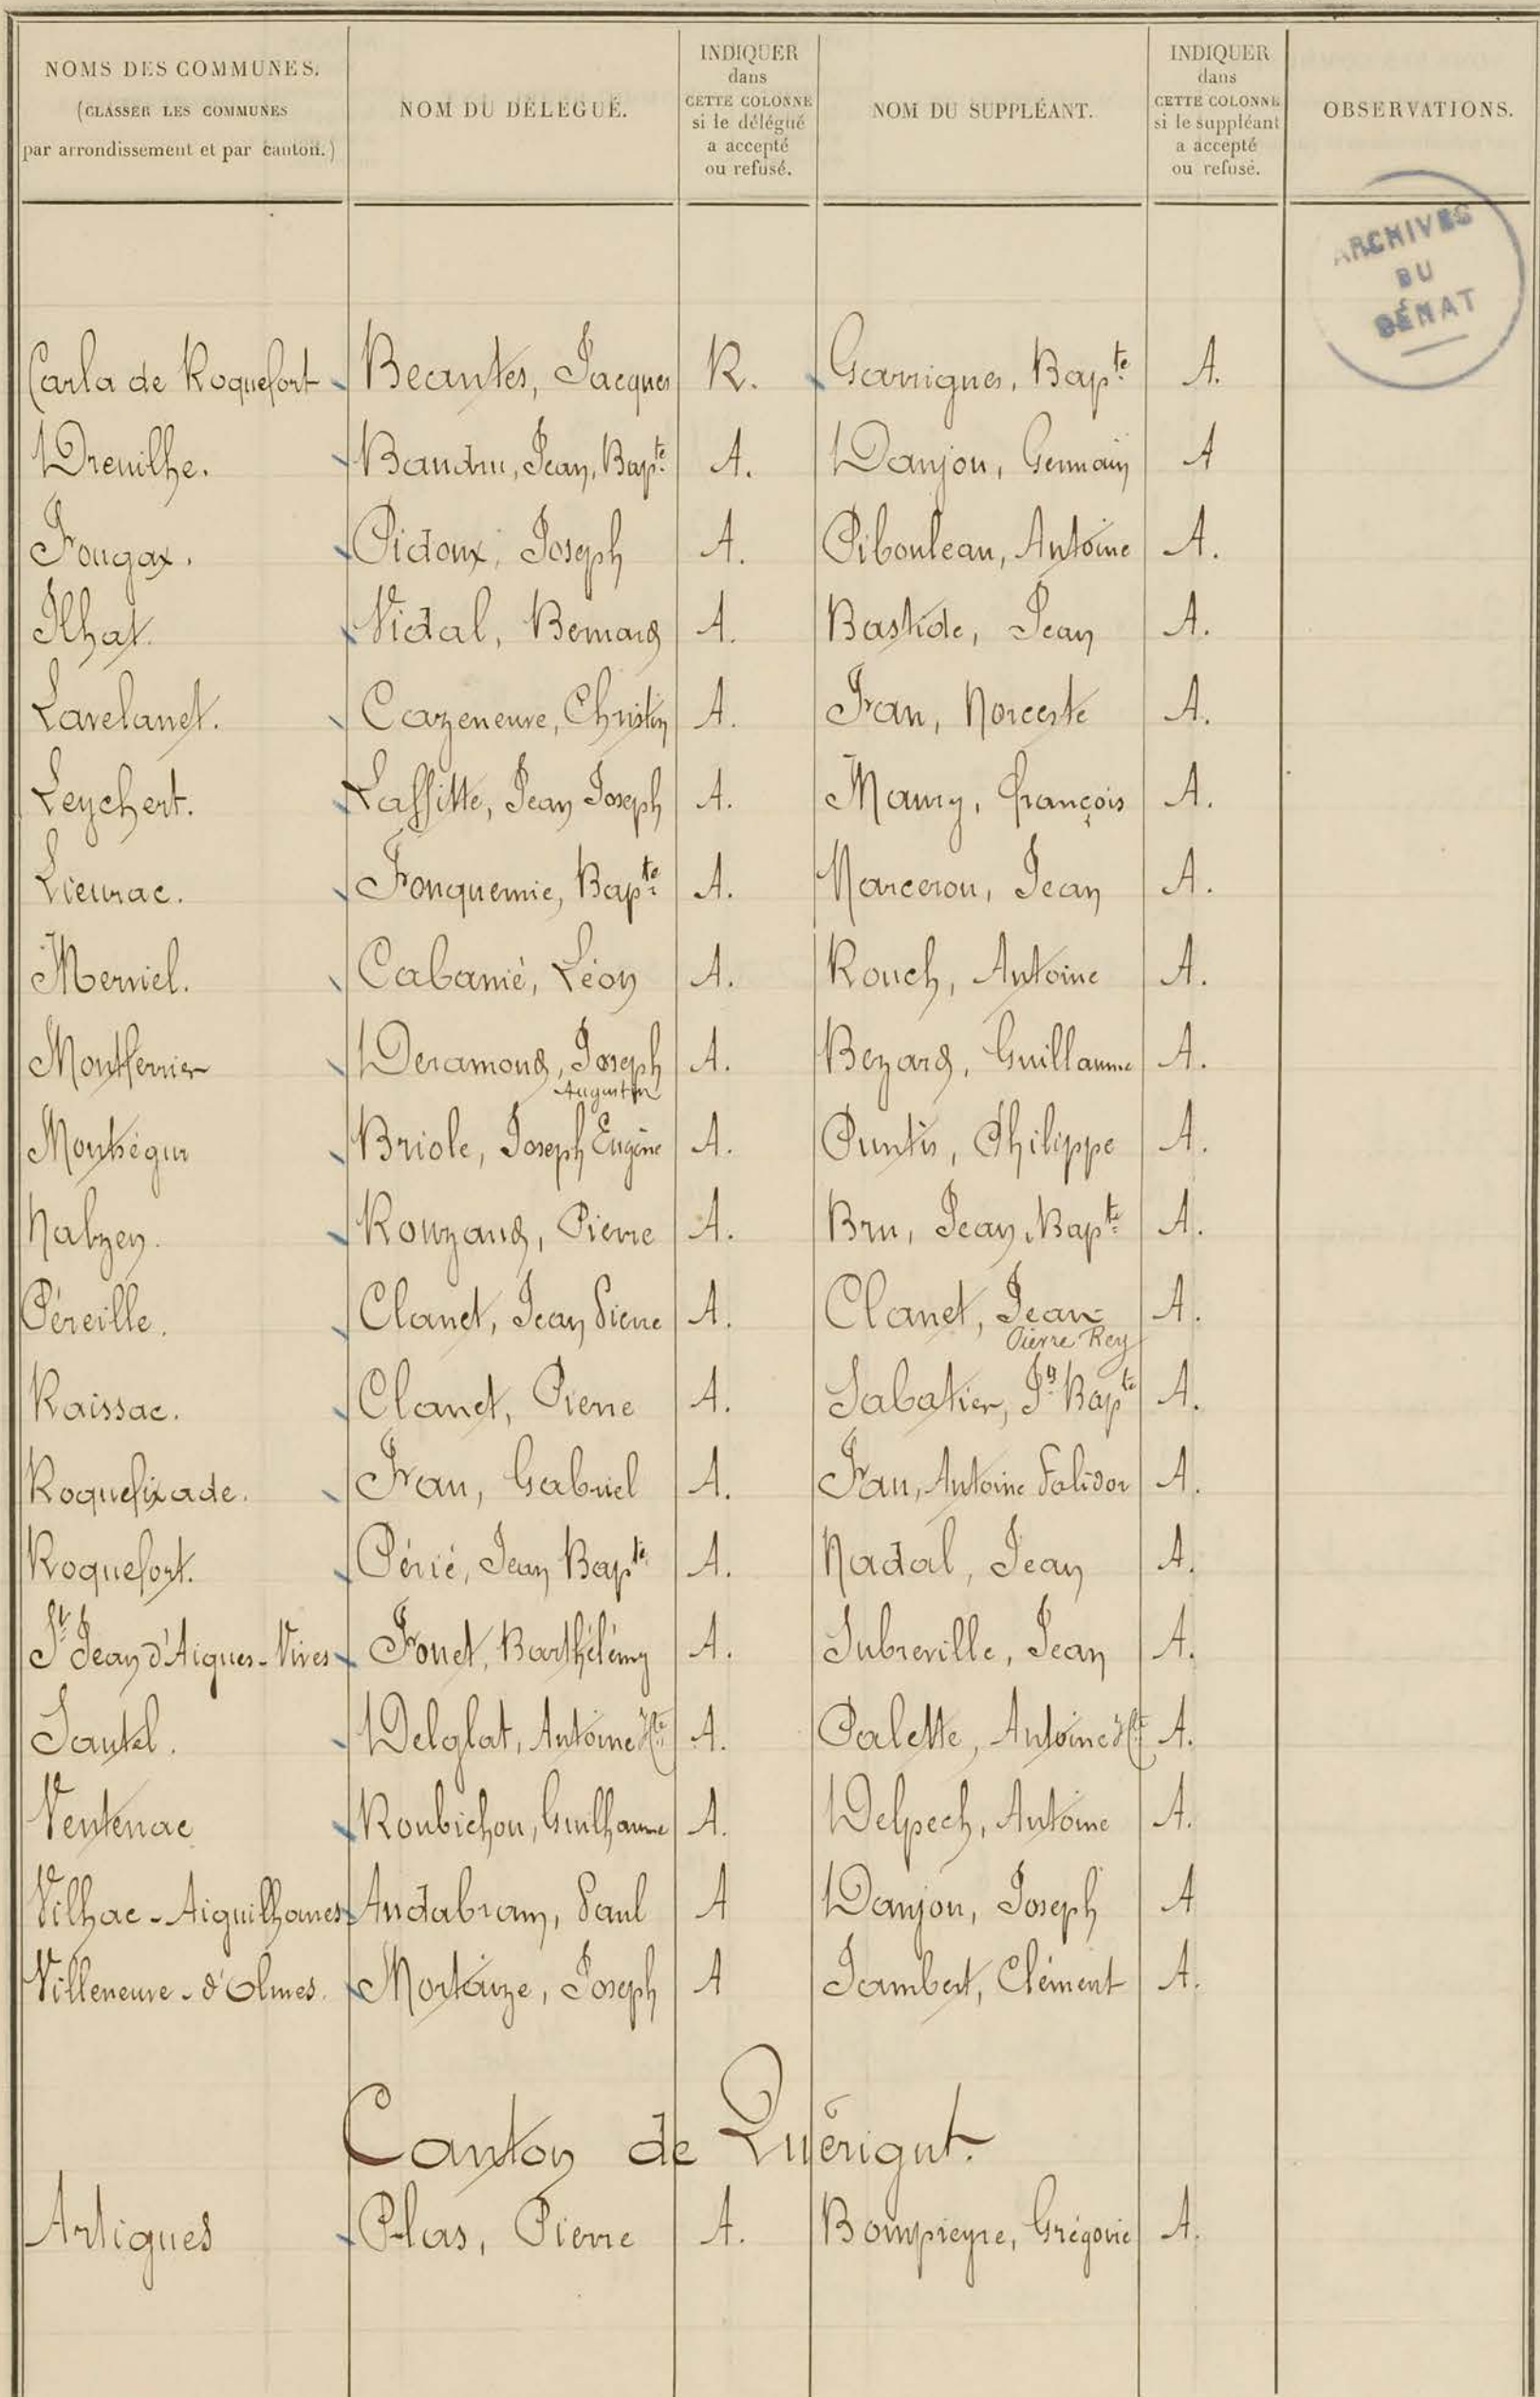 NOMS DES COMMUNES. (CLASSER LES COMMUNES par arrondissement et par canton.) NOM DU DÉLÉGUÉ. INDIQUER dans CETTE COLONNE si le délégué a accepté ou refusé. NOM DU SUPPLÉANT. INDIQUER dans CETTE COLONNE si le suppléant a accepté ou refusé. OBSERVATIONS.
ARCHIVES
DU
SÉNAT
Carla de Roquefort Becantes, Jacques R. Garrigues, Bapte A.
Dreuilhe. Baudru, Jean, Bapte A. Danjou, Germain A
Fougax. Pidoux, Joseph A. Pibouleau, Antoine A.
Ilhat. Vidal, Bernard A. Bastide, Jean A.
Lavelanet. Cazeneuve, Christin A. Frau, A.
Leychert. Laffitte, Jean Joseph A. Maury, François A.
Lieurac. Fonquernie, Bapte A. Marcerou, Jean A.
Merviel. Cabanié, Léon A. Rouch, Antoine A.
Montferrier Deramond, Joseph A. Bezard, Guillaume A.
Augustin
Montségur Briole, Joseph Eugène A. Puntis, Philippe A.
Nalzen. Rouzaud, Pierre A. Bru, Jean, Bapte A.
Péreille. Clanet, Jean Pierre A. Clanet, Jean A.
Pierre Rey
Raissac. Clanet, Pierre A. Sabatier, Jn Bapte A.
Roquefixade. Frau, Gabriel A. Frau, Antoine Falidor A.
Roquefort. Périé, Jean Bapte A. Nadal, Jean A.
St Jean d'Aigues-Vives Fonet, Barthélémy A. Subreville, Jean A.
Sautel. Delglat, Antoine Hte A. Palette, Antoine Hte A.
Ventenac Roubichou, Guilhaume A. Delpech, Antoine A.
Vilhac-Aiguilhanes Andabram, Paul A Danjou, Joseph A
Villeneuve-d'Olmes. Mortaize, Joseph A Jambert, Clément A.
Canton de Quérigut.
Artigues Plas, Pierre A. Bompieyre, Grégoire A.